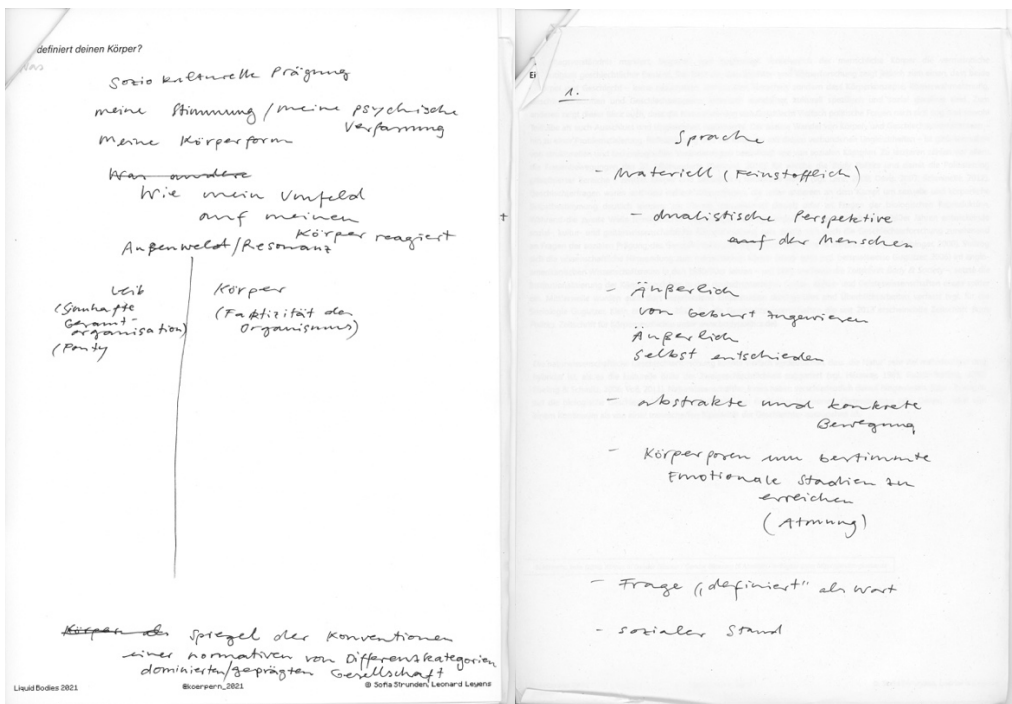 definiert deinen Körper?
was
Sozio kulturelle Prägung
meine Stimmung / meine psychische
Verfassung
Meine Körperform
Was andere
Wie mein Umfeld
auf meinen
Körper reagiert
Außenwelt/Resonanz
Leib
(Sinnhafte
Gesamt-
organisation)
(Ponty
Körper
(Faktizität des
Organismus)
Körper des Spiegel der Konventionen
einer normativen von Differenzkategorien
dominierten/geprägten Gesellschaft
Liquid Bodies 2021
@koerpern_2021
© Sofia Strunden, Leonard Leyens
Ei
1.
Sprache
- Materiell (Feinstofflich)
- dualistische Perspektive
auf der Menschen
- Äußerlich
von Geburt zugewiesen
Äußerlich
selbst entschieden
- abstrakte und konkrete
Bewegung
- Körperposen um bestimmte
Emotionale Stadien zu
erreichen
(Atmung)
- Frage „definiert" als Wort
- sozialer Stand